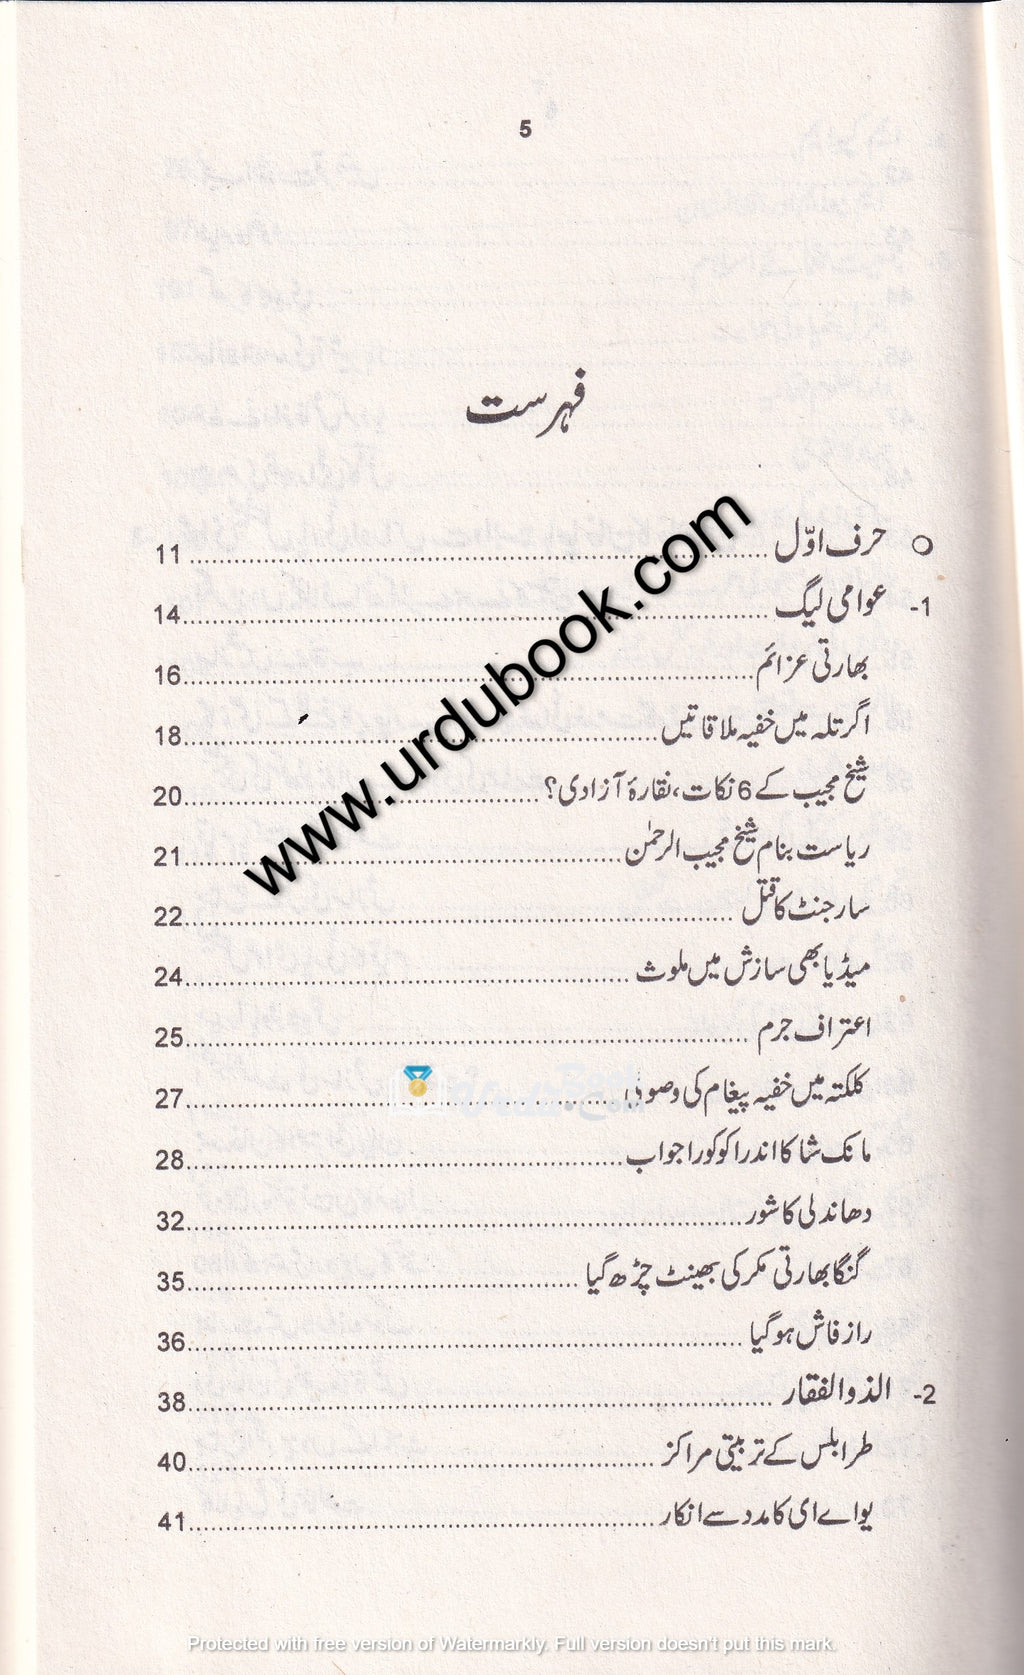 5
فہرست
○ حرف اوّل ........ 11
1- عوامی لیگ ........ 14
بھارتی عزائم ........ 16
اگرتلہ میں خفیہ ملاقاتیں ........ 18
شیخ مجیب کے 6 نکات، نقارۂ آزادی؟ ........ 20
ریاست بنام شیخ مجیب الرحمٰن ........ 21
سارجنٹ کا قتل ........ 22
میڈیا بھی سازش میں ملوث ........ 24
اعتراف جرم ........ 25
کلکتہ میں خفیہ پیغام کی وصولی ........ 27
مانک شا کا اندرا کو کورا جواب ........ 28
دھاندلی کا شور ........ 32
گنگا بھارتی مکر کی بھینٹ چڑھ گیا ........ 35
راز فاش ہو گیا ........ 36
2- الذوالفقار ........ 38
طرابلس کے تربیتی مراکز ........ 40
یو اے ای کا مدد سے انکار ........ 41
www.urdubook.com
Protected with free version of Watermarkly. Full version doesn't put this mark.